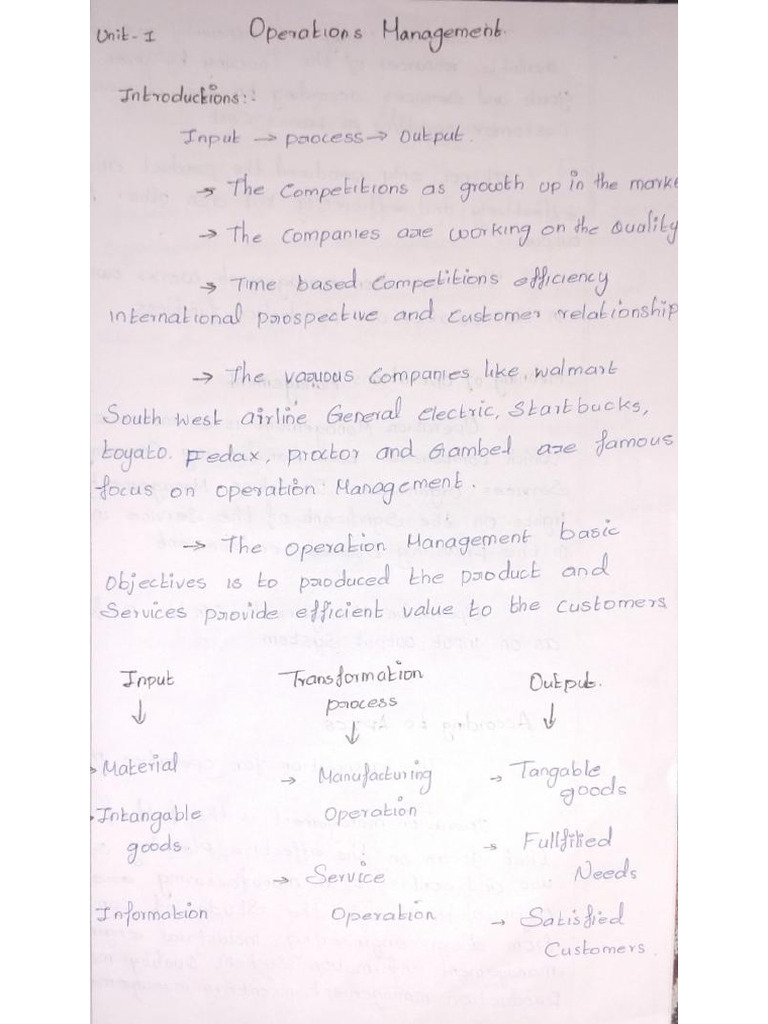 Unit-I Operations Management.
Introductions:-
Input → process → Output.
→ The Competitions as growth up in the marke
→ The Companies are working on the Quality
→ Time based Competitions efficiency
international prospective and Customer relationship
→ The various Companies like walmart
South west airline General electric, Startbucks,
toyato. Fedax, proctor and Gambel are famous
focus on operation Management.
→ The Operation Management basic
Objectives is to produced the product and
Services provide efficient value to the customers
Input Transformation process Output.
↓ ↓ ↓
→ Material → Manufacturing Operation → Tangable goods
Intangable goods → Service Operation → Fullfilied Needs
Information → Satisfied Customers.